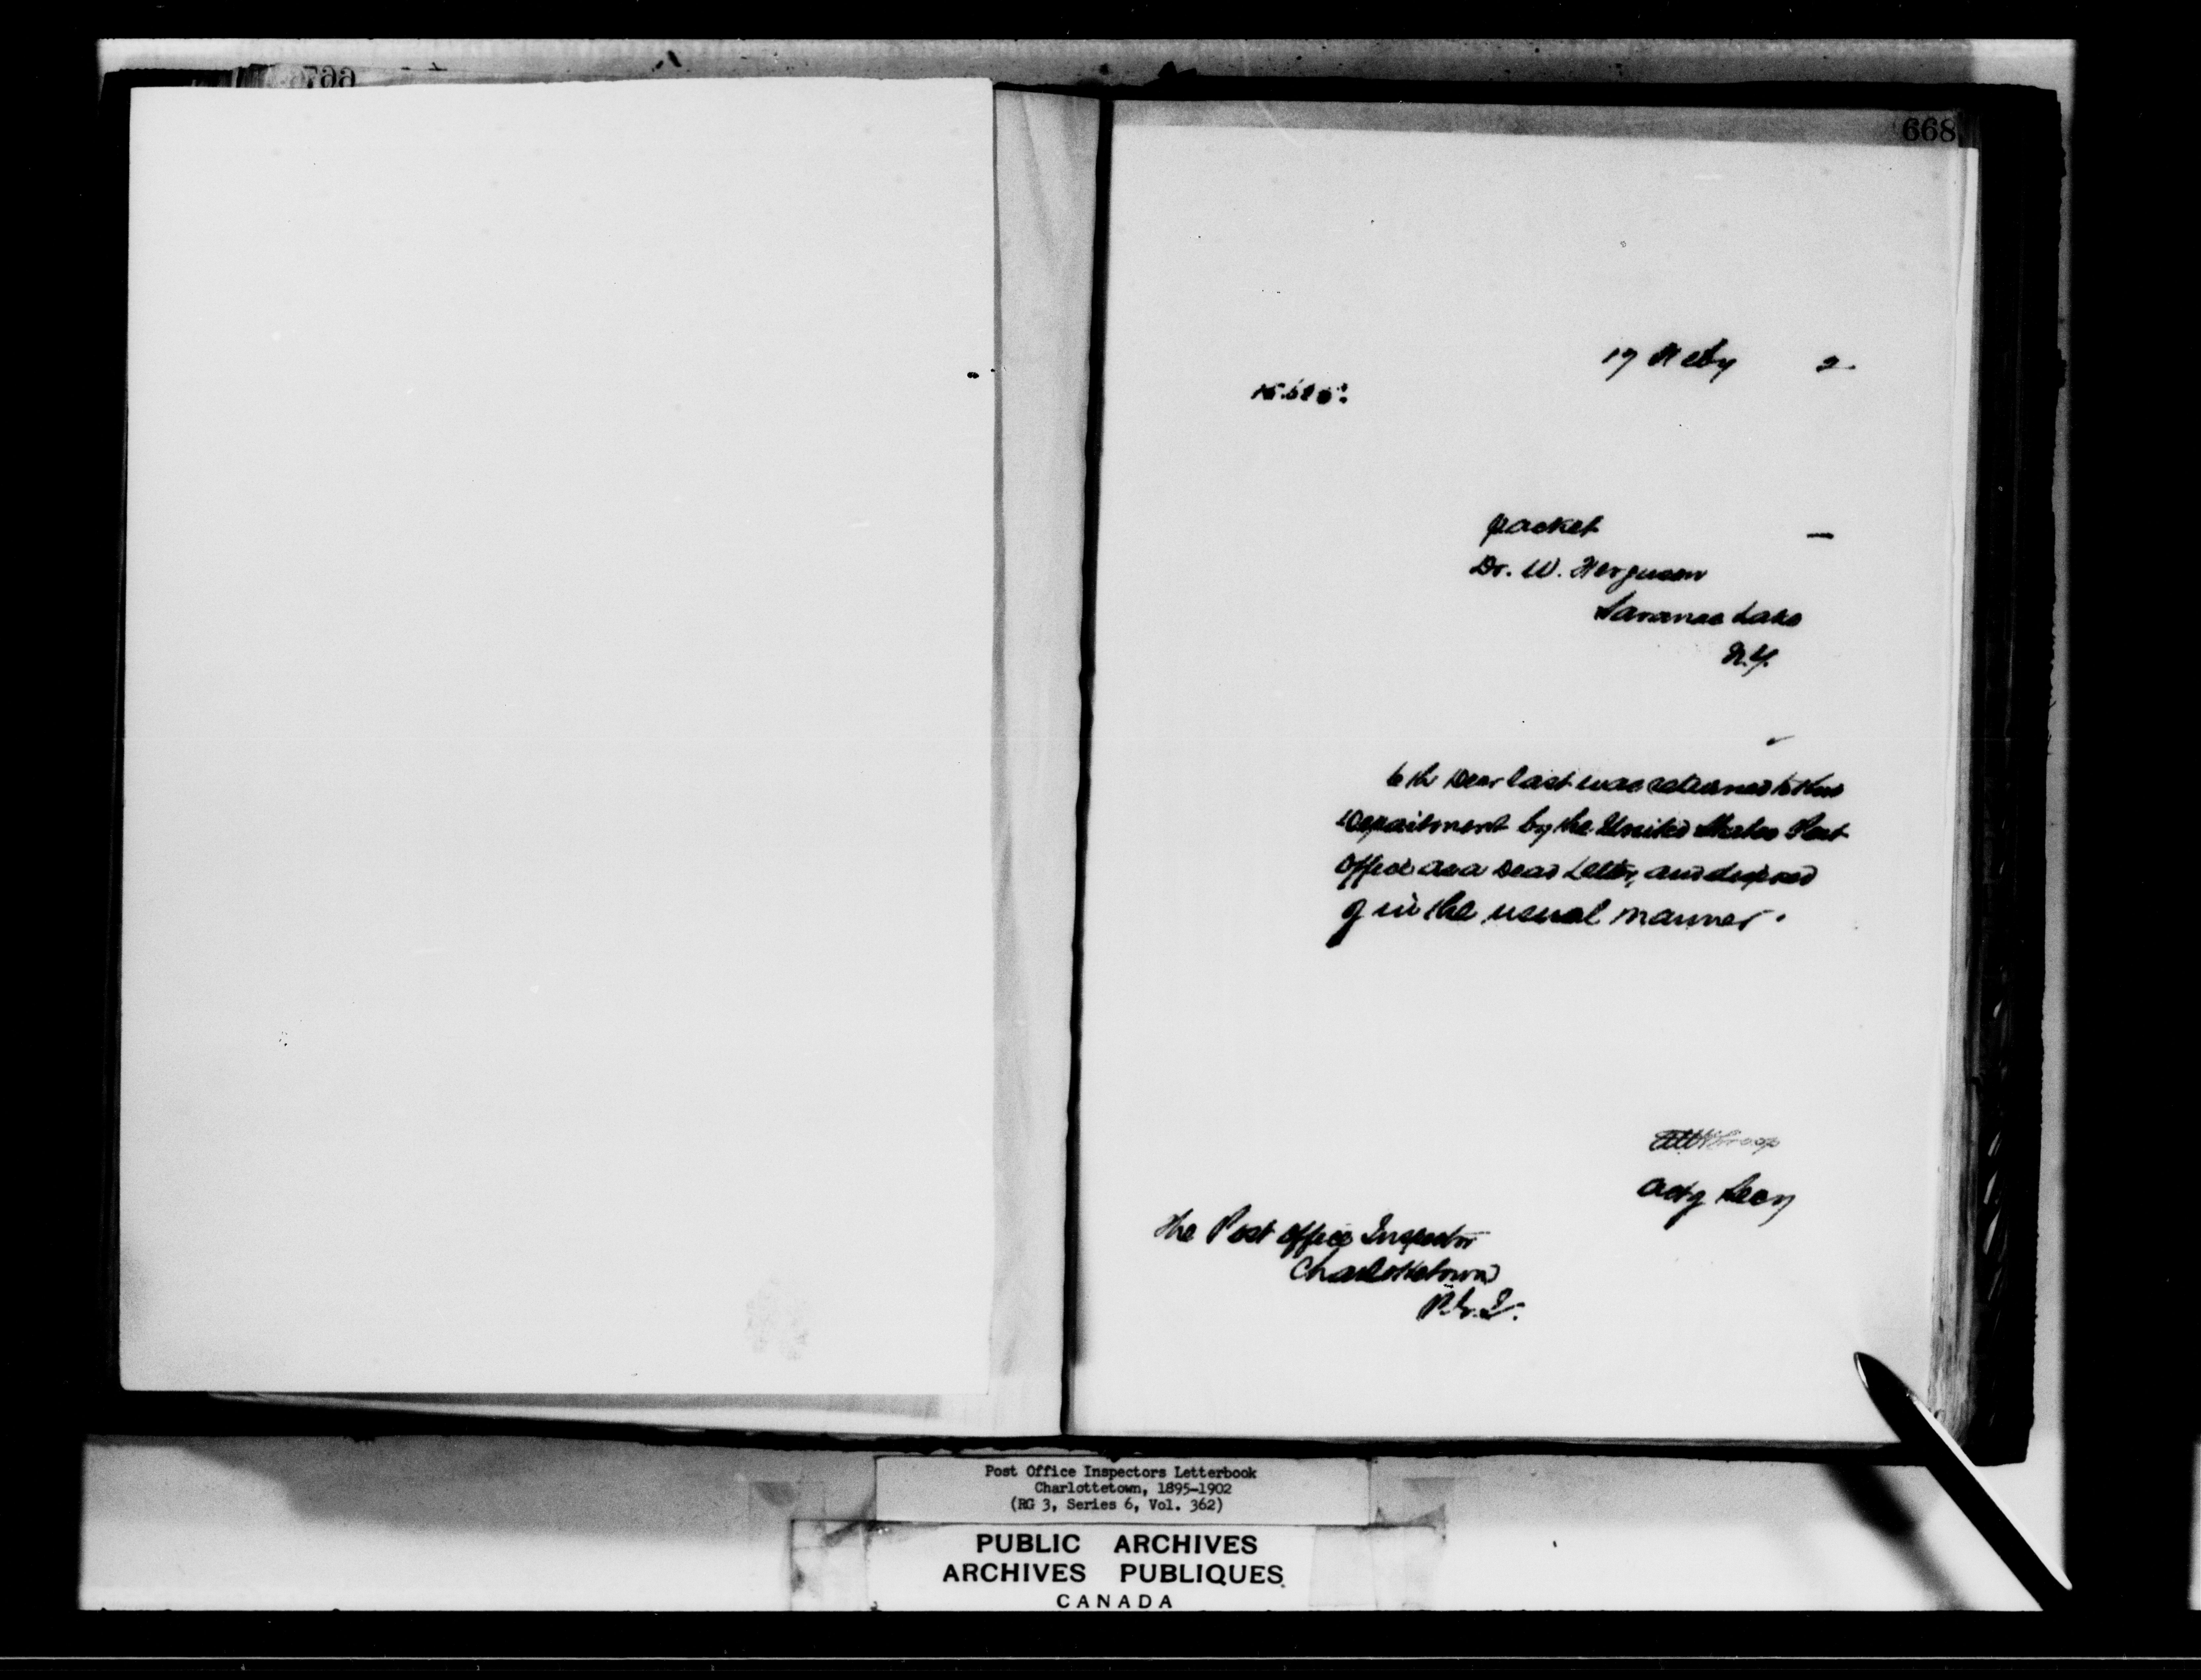 668
17 Feby 2
packet —
Dr. W. Ferguson
Saranac Lake
N.Y.
6th Decr last was returned to this
Department by the United States Post
Office as a Dead Letter, and disposed
of in the usual manner.
Actg Secy
The Post Office Inspector
Charlottetown
P.E.I.
Post Office Inspectors Letterbook
Charlottetown, 1895-1902
(RG 3, Series 6, Vol. 362)
PUBLIC ARCHIVES
ARCHIVES PUBLIQUES
CANADA